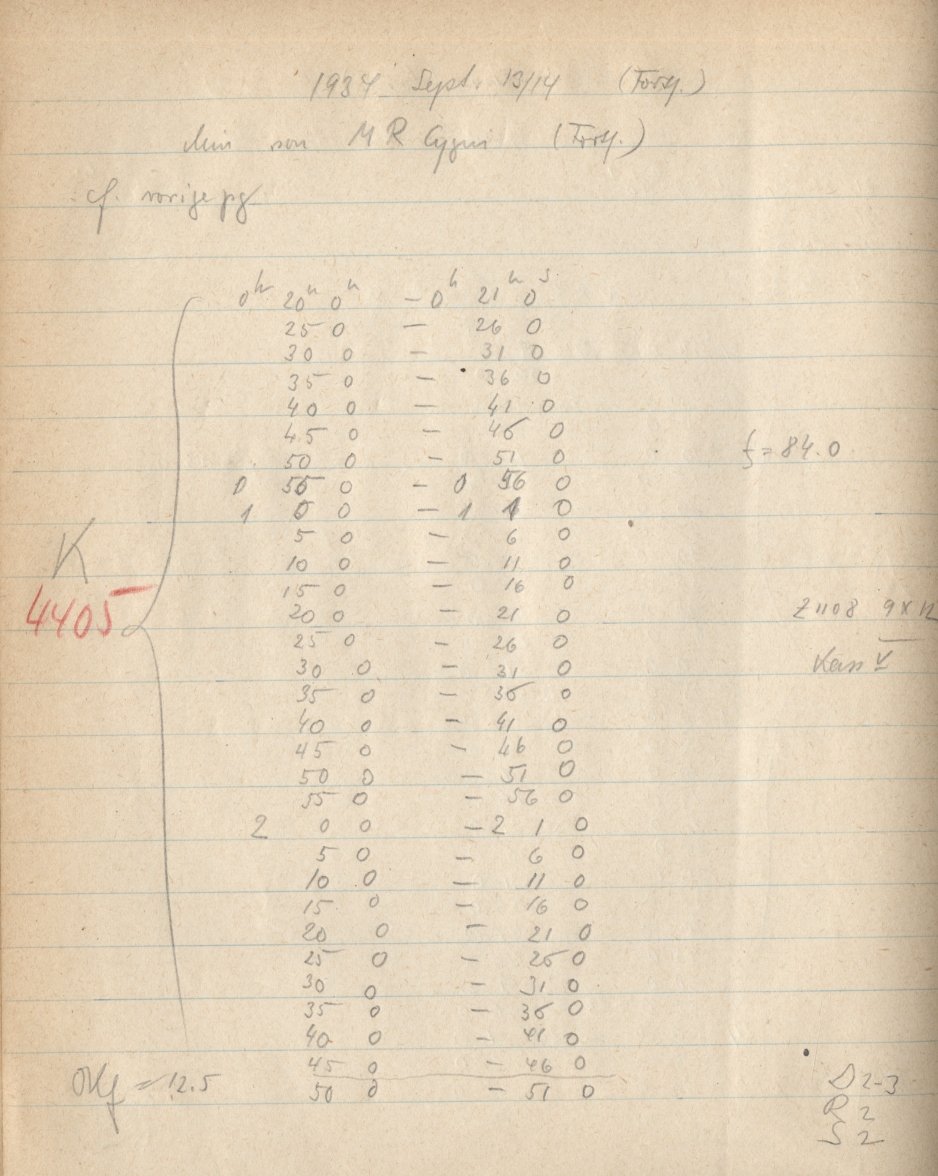 1934 Sept. 13/14 (Forts.)
Min von MR Cygni (Forts.)
cf. vorige pg
0h 20m 0s — 0h 21m 0s
25 0 — 26 0
30 0 — 31 0
35 0 — 36 0
40 0 — 41 0
45 0 — 46 0
50 0 — 51 0
0 55 0 — 0 56 0
1 0 0 — 1 1 0
5 0 — 6 0
10 0 — 11 0
15 0 — 16 0
20 0 — 21 0
25 0 — 26 0
30 0 — 31 0
35 0 — 36 0
40 0 — 41 0
45 0 — 46 0
50 0 — 51 0
55 0 — 56 0
2 0 0 — 2 1 0
5 0 — 6 0
10 0 — 11 0
15 0 — 16 0
20 0 — 21 0
25 0 — 26 0
30 0 — 31 0
35 0 — 36 0
40 0 — 41 0
45 0 — 46 0
50 0 — 51 0
K
4405
f = 84.0
Z1108 9x12
Kass V
= 12.5
D 2-3
R 2
S 2